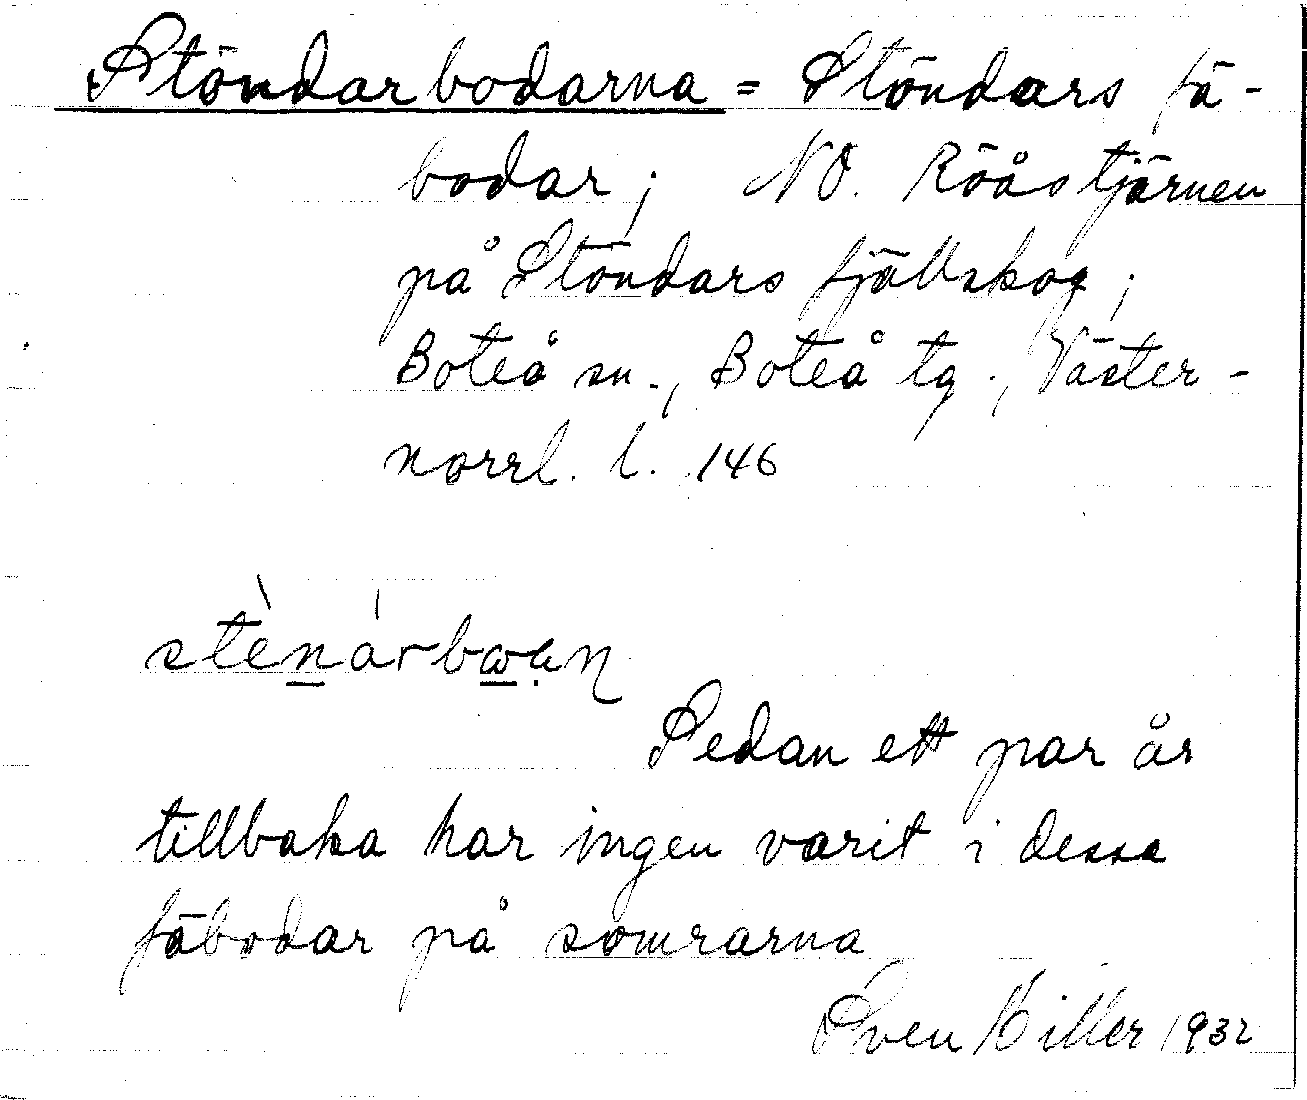 Stöndarbodarna = Stöndars fä-
bodar; NO. Rööstjärnen
på Stöndars fjällskog;
Boteå sn., Boteå tg., Väster-
norrl. l. 146
Sedan ett par år
tillbaka har ingen varit i dessa
fäbodar på somrarna
Sven Hiller 1932